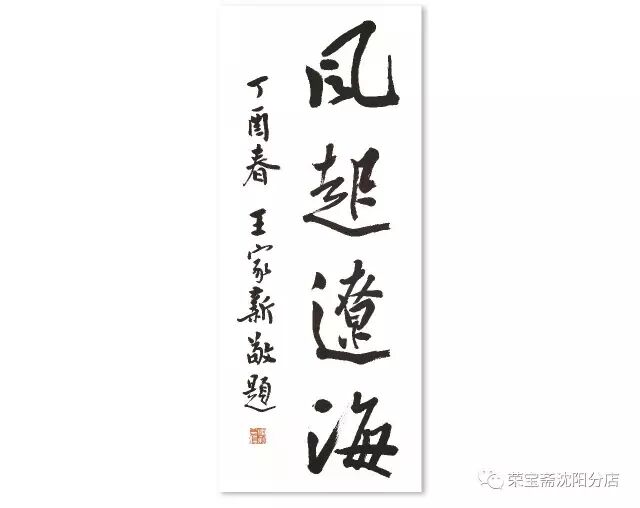 風起遼海
丁酉春 王家新敬題
荣宝斋沈阳分店